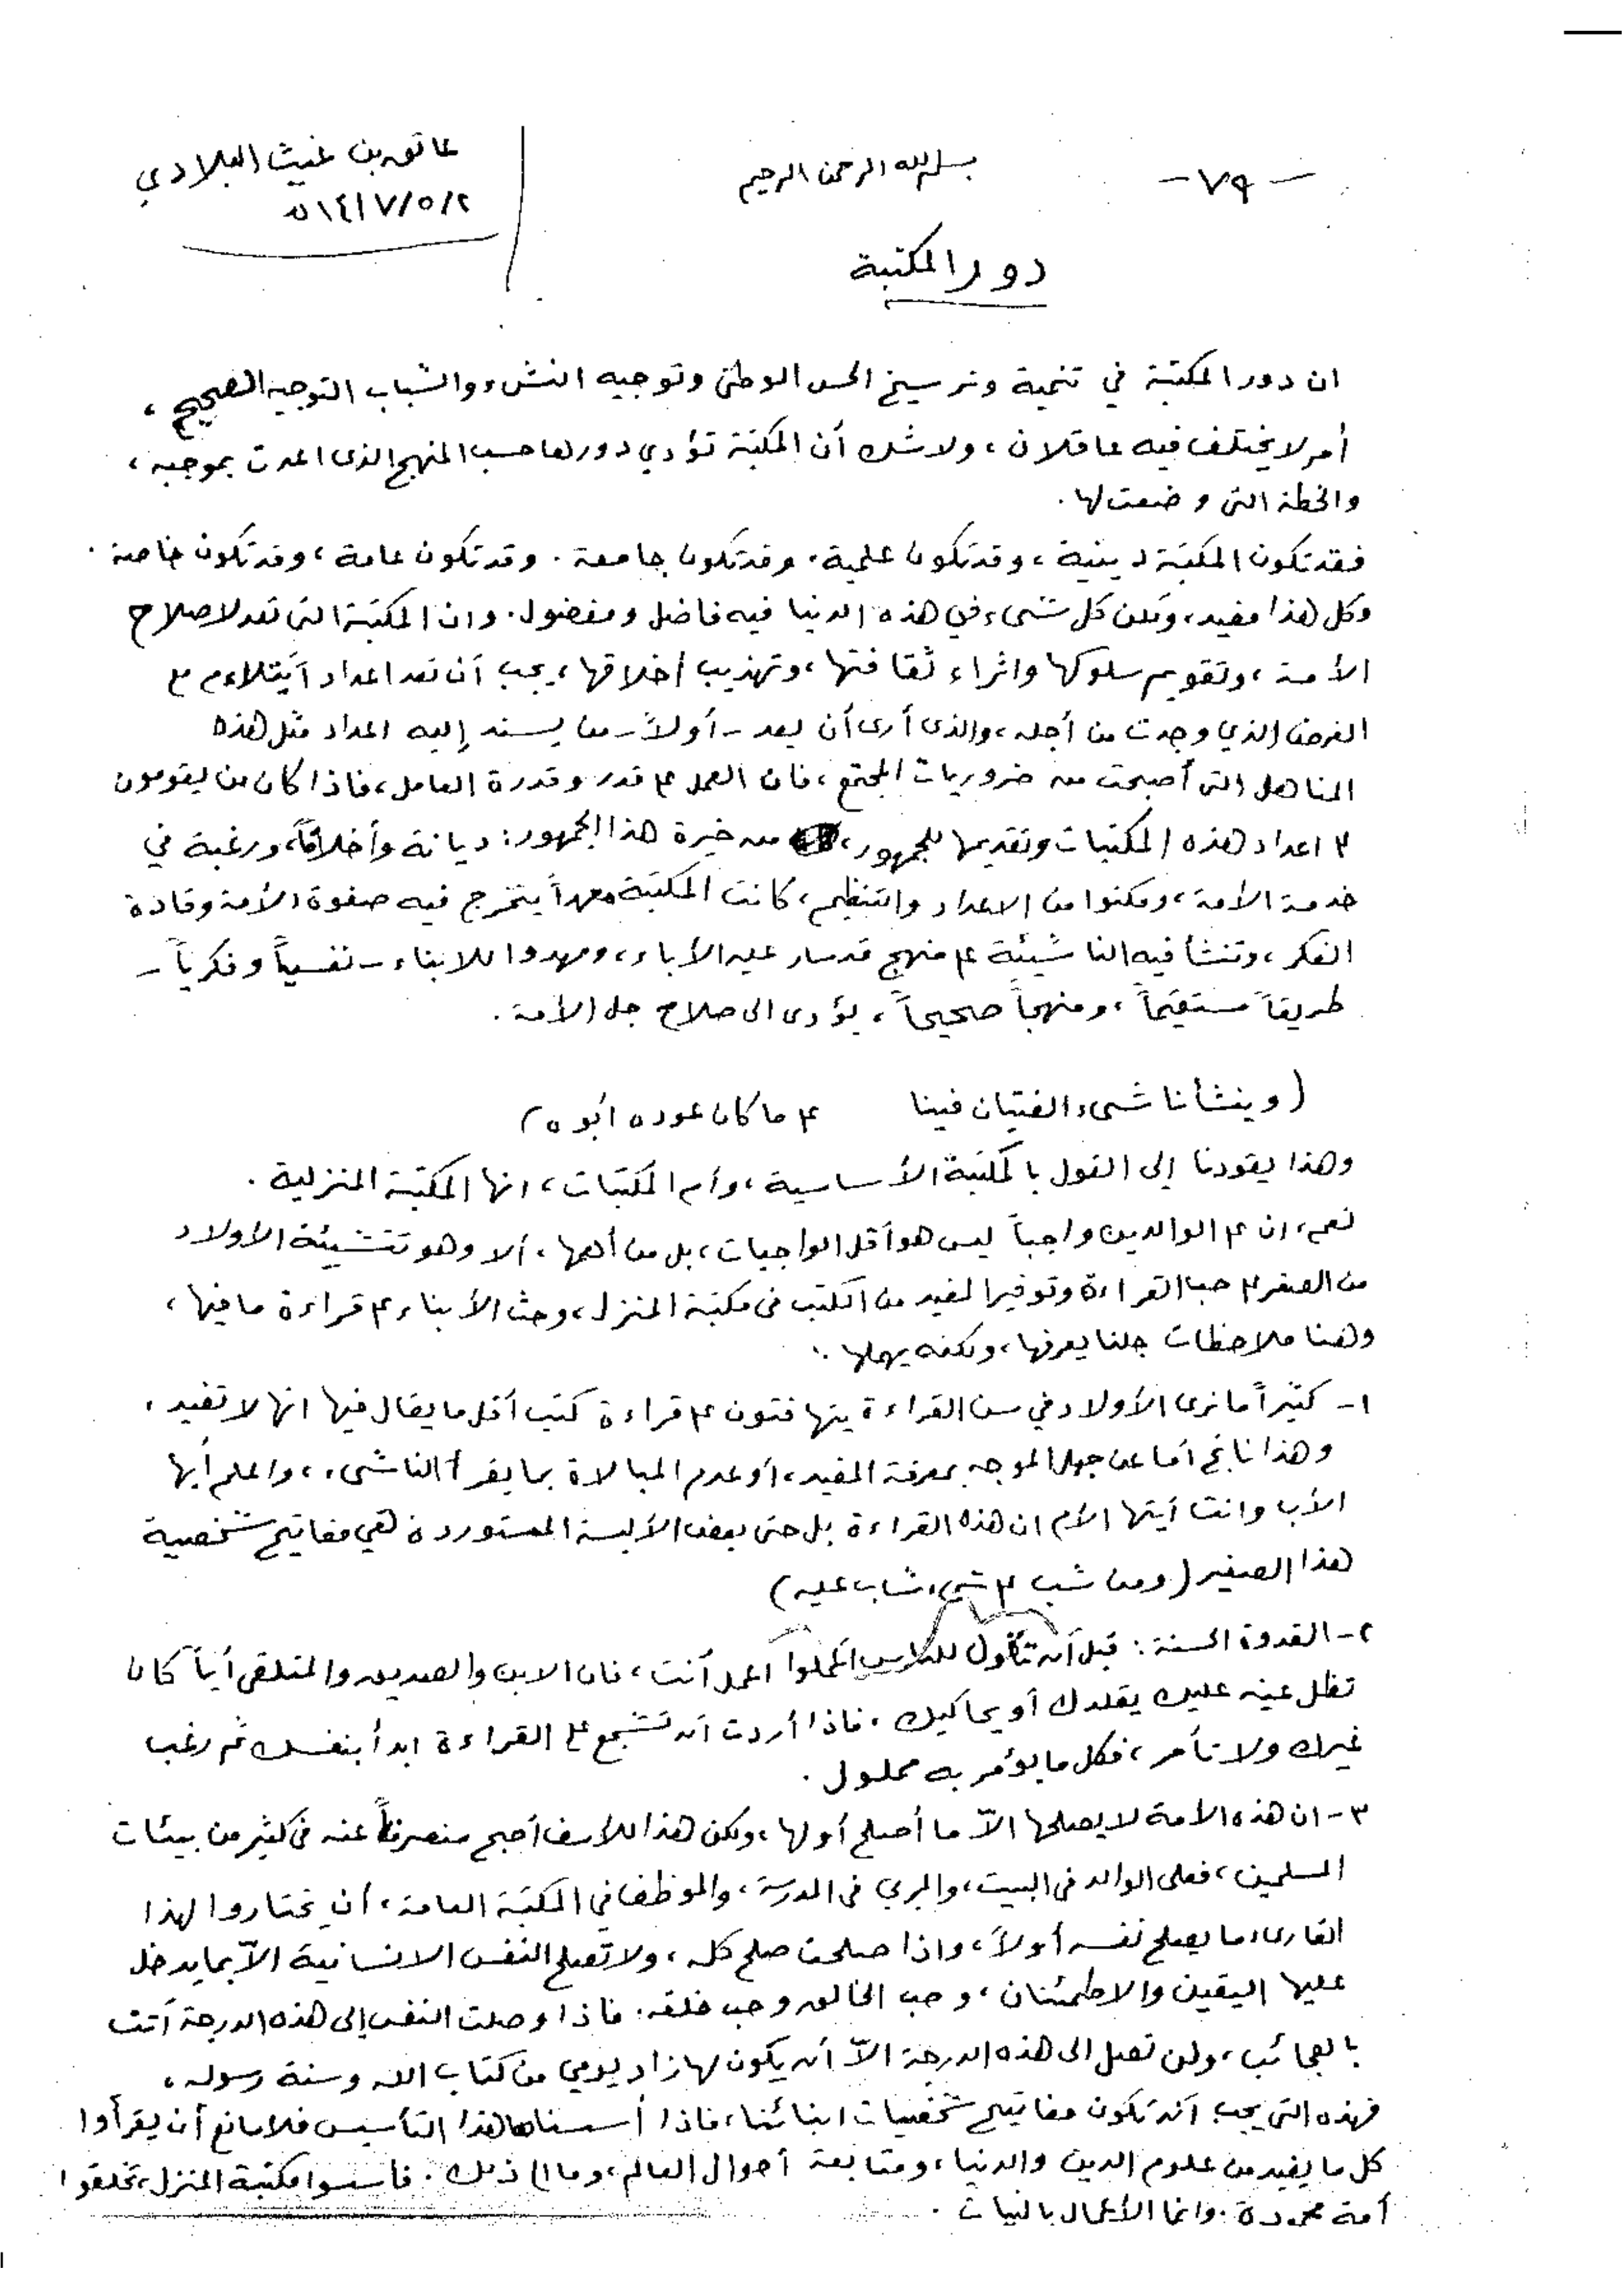 - ٧٩ -
بسم الله الرحمن الرحيم
عاتق بن غيث البلادي
١٤١٧/٥/٢ﻫ
دور المكتبة
ان دور المكتبة في تنمية وترسيخ الحس الوطني وتوجيه النشء والشباب التوجيه الصحيح ،
أمر لا يختلف فيه عاقلان ، ولاشك أن المكتبة تؤدي دورها حسب المنهج الذى اعدت بموجبه ،
والخطة التى وضعت لها .
فقد تكون المكتبة دينية ، وقد تكون علمية . وقد تكون جامعة . وقد تكون عامة ، وقد تكون خاصة .
وكل هذا مفيد ، ولكن كل شىء في هذه الدنيا فيه فاضل ومفضول . وان المكتبة التى تعد لاصلاح
الأمة ، وتقويم سلوكها واثراء ثقافتها ، وتهذيب أخلاقها ، يجب أن تعد اعداد اً يتلاءم مع
الغرض الذي وجدت من أجله ، والذى أرى أن يعد - أولاً - من يسند إليه اعداد مثل هذه
المناهل التى أصبحت من ضروريات المجتمع ، فان العمل على قدر وقدرة العامل ، فاذا كان من يقومون
على اعداد هذه المكتبات وتقديمها للجمهور ، من خيرة هذا الجمهور : ديانة وأخلاقاً ، ورغبة في
خدمة الأمة ، ومكنوا من الاعداد والتنظيم ، كانت المكتبة معهداً يتخرج فيه صفوة الأمة وقادة
الفكر ، وتنشأ فيه الناشيئة على منهج قد سار عليه الأباء ، ومهدوا للابناء - نفسياً وفكرياً -
طريقاً مستقيماً ، ومنهجاً صحيحاً ، يؤدى الى صلاح جل الأمة .
(وينشأ ناشىء الفتيان فينا على ما كان عوده أبوه)
وهذا يقودنا إلى القول بالمكتبة الأساسية ، وأم المكتبات ، انها المكتبة المنزلية .
نعم ، ان على الوالدين واجباً ليس هو أقل الواجبات ، بل من أهمها ، ألا وهو تنشيئة الأولاد
من الصغر على حب القراءة وتوفير المفيد من الكتب فى مكتبة المنزل ، وحث الأبناء على قراءة ما فيها ،
وهنا ملاحظات جلنا يعرفها ، ولكنه يهملها :
١- كثيراً ما نرى الأولاد في سن القراءة يتهافتون على قراءة كتب أقل ما يقال فيها انها لا تفيد ،
وهذا ناتج أما عن جهل الموجه بمعرفة المفيد ، أو عدم المبالاة بما يقرأ الناشىء ، واعلم أيها
الأب وانت أيتها الأم ان هذه القراءة بل حتى بعض الألبسة المستوردة هي مفاتيح شخصية
هذا الصغير (ومن شب على شىء شاب عليه)
٢- القدوة الحسنة : قبل أن تقول للناس اعملوا اعمل أنت ، فان الابن والصديق والمتلقى أياً كان
تظل عينه عليك يقلدك أو يحاكيك ، فاذا أردت أن تشجع على القراءة ابدأ بنفسك ثم رغب
غيرك ولا تأمر ، فكل ما يؤمر به مملول .
٣- ان هذه الأمة لا يصلحها الاّ ما أصلح أولها ، ولكن هذا للأسف أصبح منصرفاً عنه فى كثير من بيئات
المسلمين ، فعلى الوالد فى البيت ، والمربي فى المدرسة ، والموظف في المكتبة العامة ، أن يختاروا لهذا
القارىء ما يصلح نفسه أولاً ، واذا صلحت صلح كله ، ولا تصلح النفس الانسانية الاّ بما يدخل
عليها اليقين والاطمئنان ، وحب الخالق وحب خلقه . فاذا وصلت النفس إلى هذه الدرجة أتت
بالعجائب ، ولن تصل الى هذه الدرجة الاّ أن يكون لها زاد يومي من كتاب الله وسنة رسوله ،
فهذه التي يجب أن تكون مفاتيح شخصيات ابنائنا ، فاذا أسسنا هذا التأسيس فلا مانع أن يقرأوا
كل ما يفيد من علوم الدين والدنيا ، ومتابعة أحوال العالم ، وما الى ذلك . فأسسوا مكتبة المنزل ، تخلقوا
أمة محمودة . وانما الأعمال بالنيات .